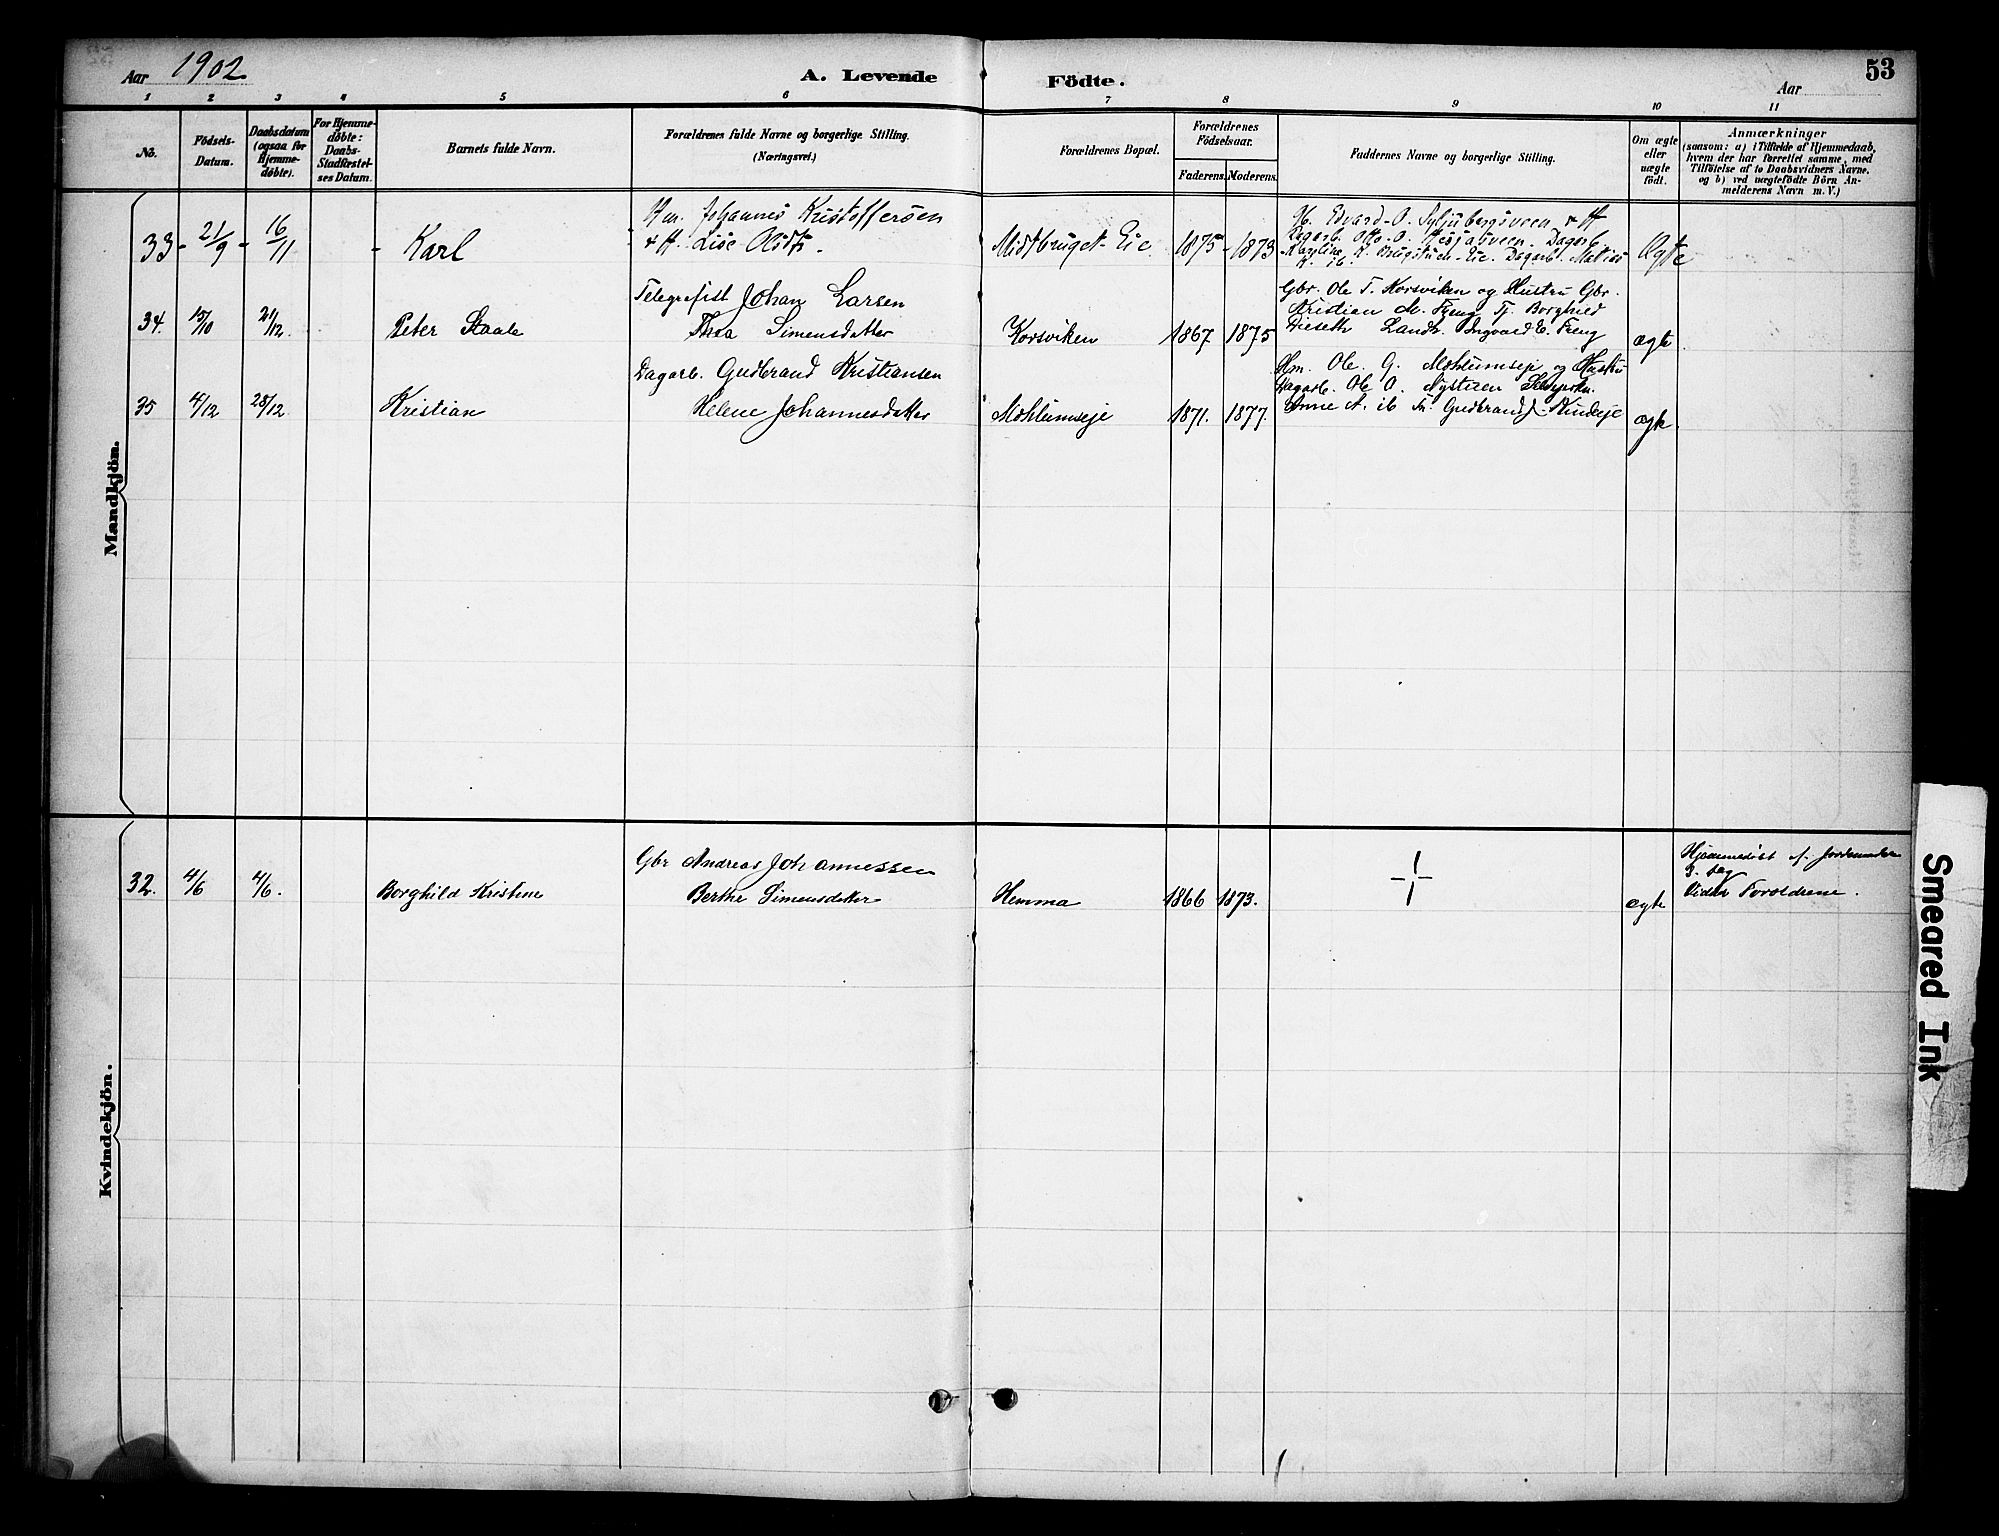 Aar 1902
A. Levende Födte.
Aar
53
1 2 3 4 5 6 7 8 9 10 11
No.
Födsels-
Datum.
Daabsdatum
(ogsaa for
Hjemme-
døbte).
For Hjemme-
døbte:
Daabs-
Stadfæstel-
ses Datum.
Barnets fulde Navn.
Forældrenes fulde Navne og borgerlige Stilling.
(Næringsvei.)
Forældrenes Bopæl.
Forældrenes
Födselsaar.
Faderens. Moderens.
Faddernes Navne og borgerlige Stilling.
Om ægte
eller
uægte
født.
Anmærkninger
(saasom: a) i Tilfælde af Hjemmedaab,
hvem der har forrettet samme, med
Tilföielse af to Daabsvidners Navne.
og b) ved uægtefödte Börn An-
melderens Navn m. V.)
Mandkjön.
33 - 21/9 - 16/11 - Karl
Johannes Kristoffersen
Lise Olsdtr.
Midtbruget - Eie 1875 - 1873
Edvard O.
Dagarb. Otto O. Dagarb.
K. Eie. Dagarb. Matias
Ægte
34. 15/10 21/12. Peter Staale
Telegrafist Johan Larsen
Thea Simensdatter
Korsviken 1867. 1875
Gbr. Ole T. Korsviken og Hustru Gbr.
Kristian M. Freng Tj. Borghild
Dieseth Landh. Ingvard E. Freng
ægte
35 4/12 28/12. Kristian
Dagarb. Gudbrand Kristiansen
Helene Johannesdatter
Mohlumseje 1871. 1877.
Hm. Ole G. Mohlumseje og Hustru
Dagarb. Ole O.
Anne A. ib Gudbrand
ægte
Kvindekjön.
32. 4/6 4/6. Borghild Kristine
Gbr Andreas Johannessen
Berthe Simensdatter
Hemma 1866 1873.
ægte
Hjemmedøbt af Jordemoder
Vidner Foreldrene.
Smeared Ink